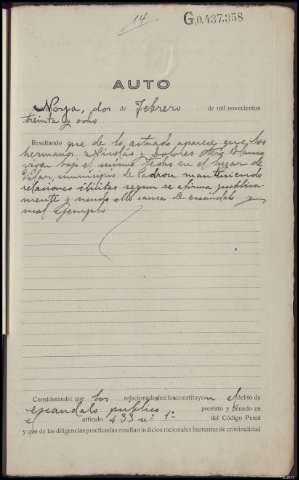 14
G.0.437.358
AUTO
Noya, dos de Febrero de mil novecientos
treinta y ocho.
Resultando que de lo actuado aparece que los
hermanos Nicolás y Dolores
viven bajo el mismo techo en el lugar de
municipio de Padrón manteniendo
relaciones ilícitas segun se afirma publica-
mente y siendo ello causa de escándalo y
mal ejemplo
Considerando: que los relacionados hechos constituyen el delito de
escandalo publico previsto y penado en
el artículo 433 nº 1º del Código Penal
y que de las diligencias practicadas resultan indicios racionales bastantes de criminalidad